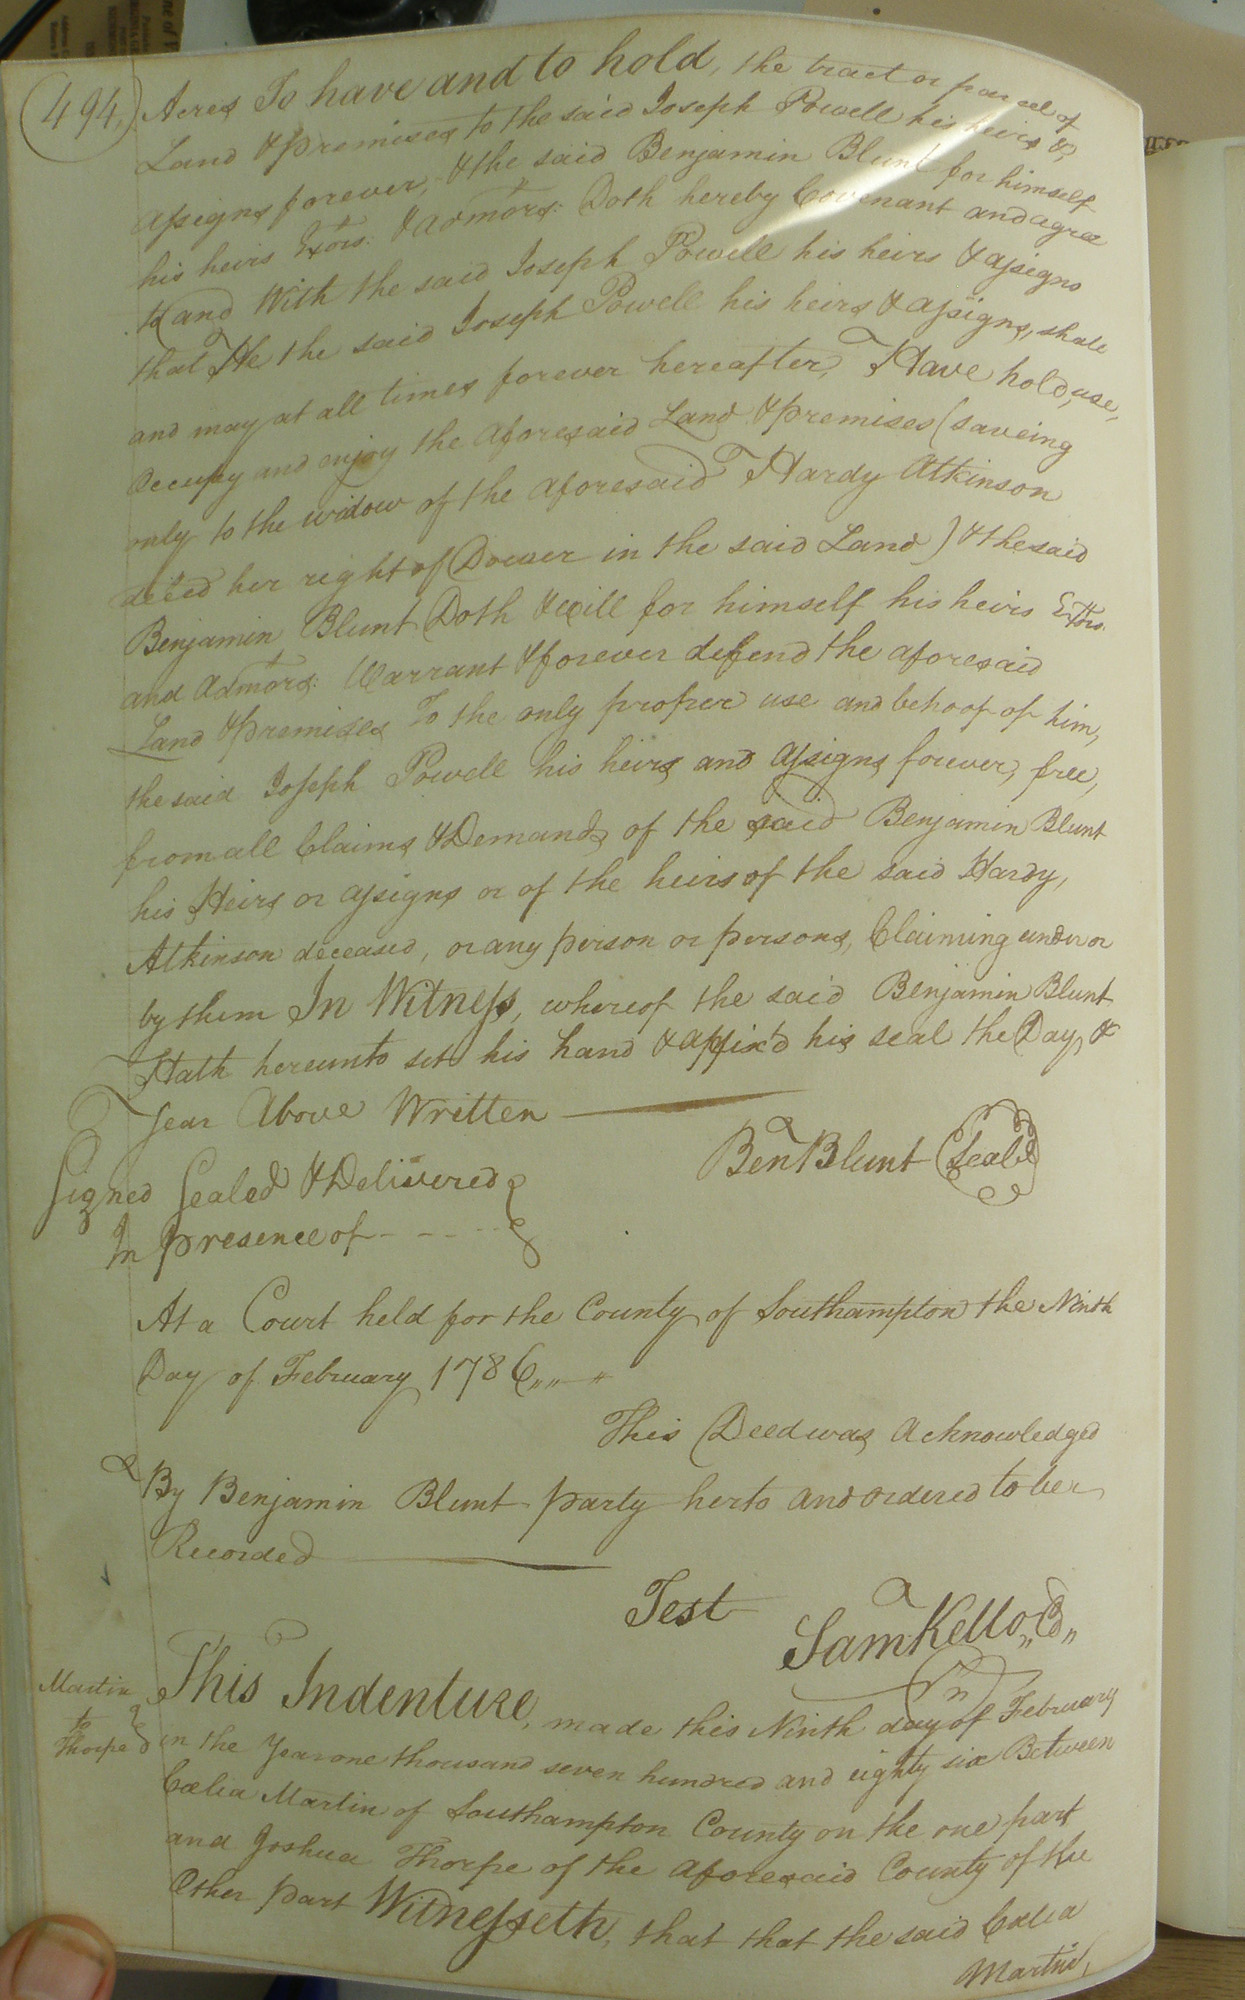 (494,)
Acres To have and to hold, the tract or parcel of
Land & premises to the said Joseph Powell his heirs &
assigns forever, & the said Benjamin Blunt for himself
his heirs Exors. & Admors: Doth hereby Covenant and agree
to and With the said Joseph Powell his heirs & assigns
that He the said Joseph Powell his heirs & assigns, shall
and may at all times forever hereafter, Have hold, use,
Occupy and enjoy the aforesaid Land & premises (saveing
only to the widow of the aforesaid Hardy Atkinson
deced her right of Dower in the said Land) & the said
Benjamin Blunt Doth & will for himself his heirs Exors.
and Admors: Warrant & forever defend the aforesaid
Land & premises To the only proper use and behoof of him,
the said Joseph Powell his heirs and assigns forever, free,
from all Claims & Demands of the said Benjamin Blunt
his Heirs or assigns or of the heirs of the said Hardy,
Atkinson deceased, or any person or persons, Claiming under or
by them In Witness, whereof the said Benjamin Blunt
Hath hereunto set his hand & affix'd his seal the Day, &
Year Above Written
Ben Blunt (Seal)
Signed Sealed & Delivered
In presence of - - - -
At a Court held for the County of Southampton the Ninth
Day of February 1786,,,,—"
This Deed was Acknowledged
By Benjamin Blunt party herto and ordered to be
Recorded
Test
Sam Kello,, C,,
Martin
to
Thorpe
This Indenture, made this Ninth day of February
in the Year one thousand seven hundred and eighty six Between
Cælia Martin of Southampton County on the one part
and Joshua Thorpe of the aforesaid County of the
Other part Witnesseth, that that the said Cælia
Martin,